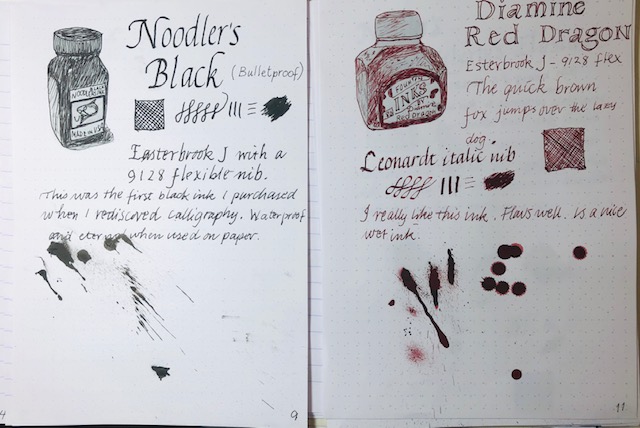 Noodler's
Black (Bulletproof)
NOODLER'S
Easterbrook J with a
9128 flexible nib.
This was the first black ink I purchased
when I rediscoved calligraphy. Waterproof
and eternal when used on paper.
4
9
Diamine
Red Dragon
Esterbrook J - 9128 flex
The quick brown
fox jumps over the lazy
dog.
FOUNTAIN
INKS
Diamine
Red Dragon
Leonardt italic nib
I really like this ink. Flows well. Is a nice
wet ink.
11